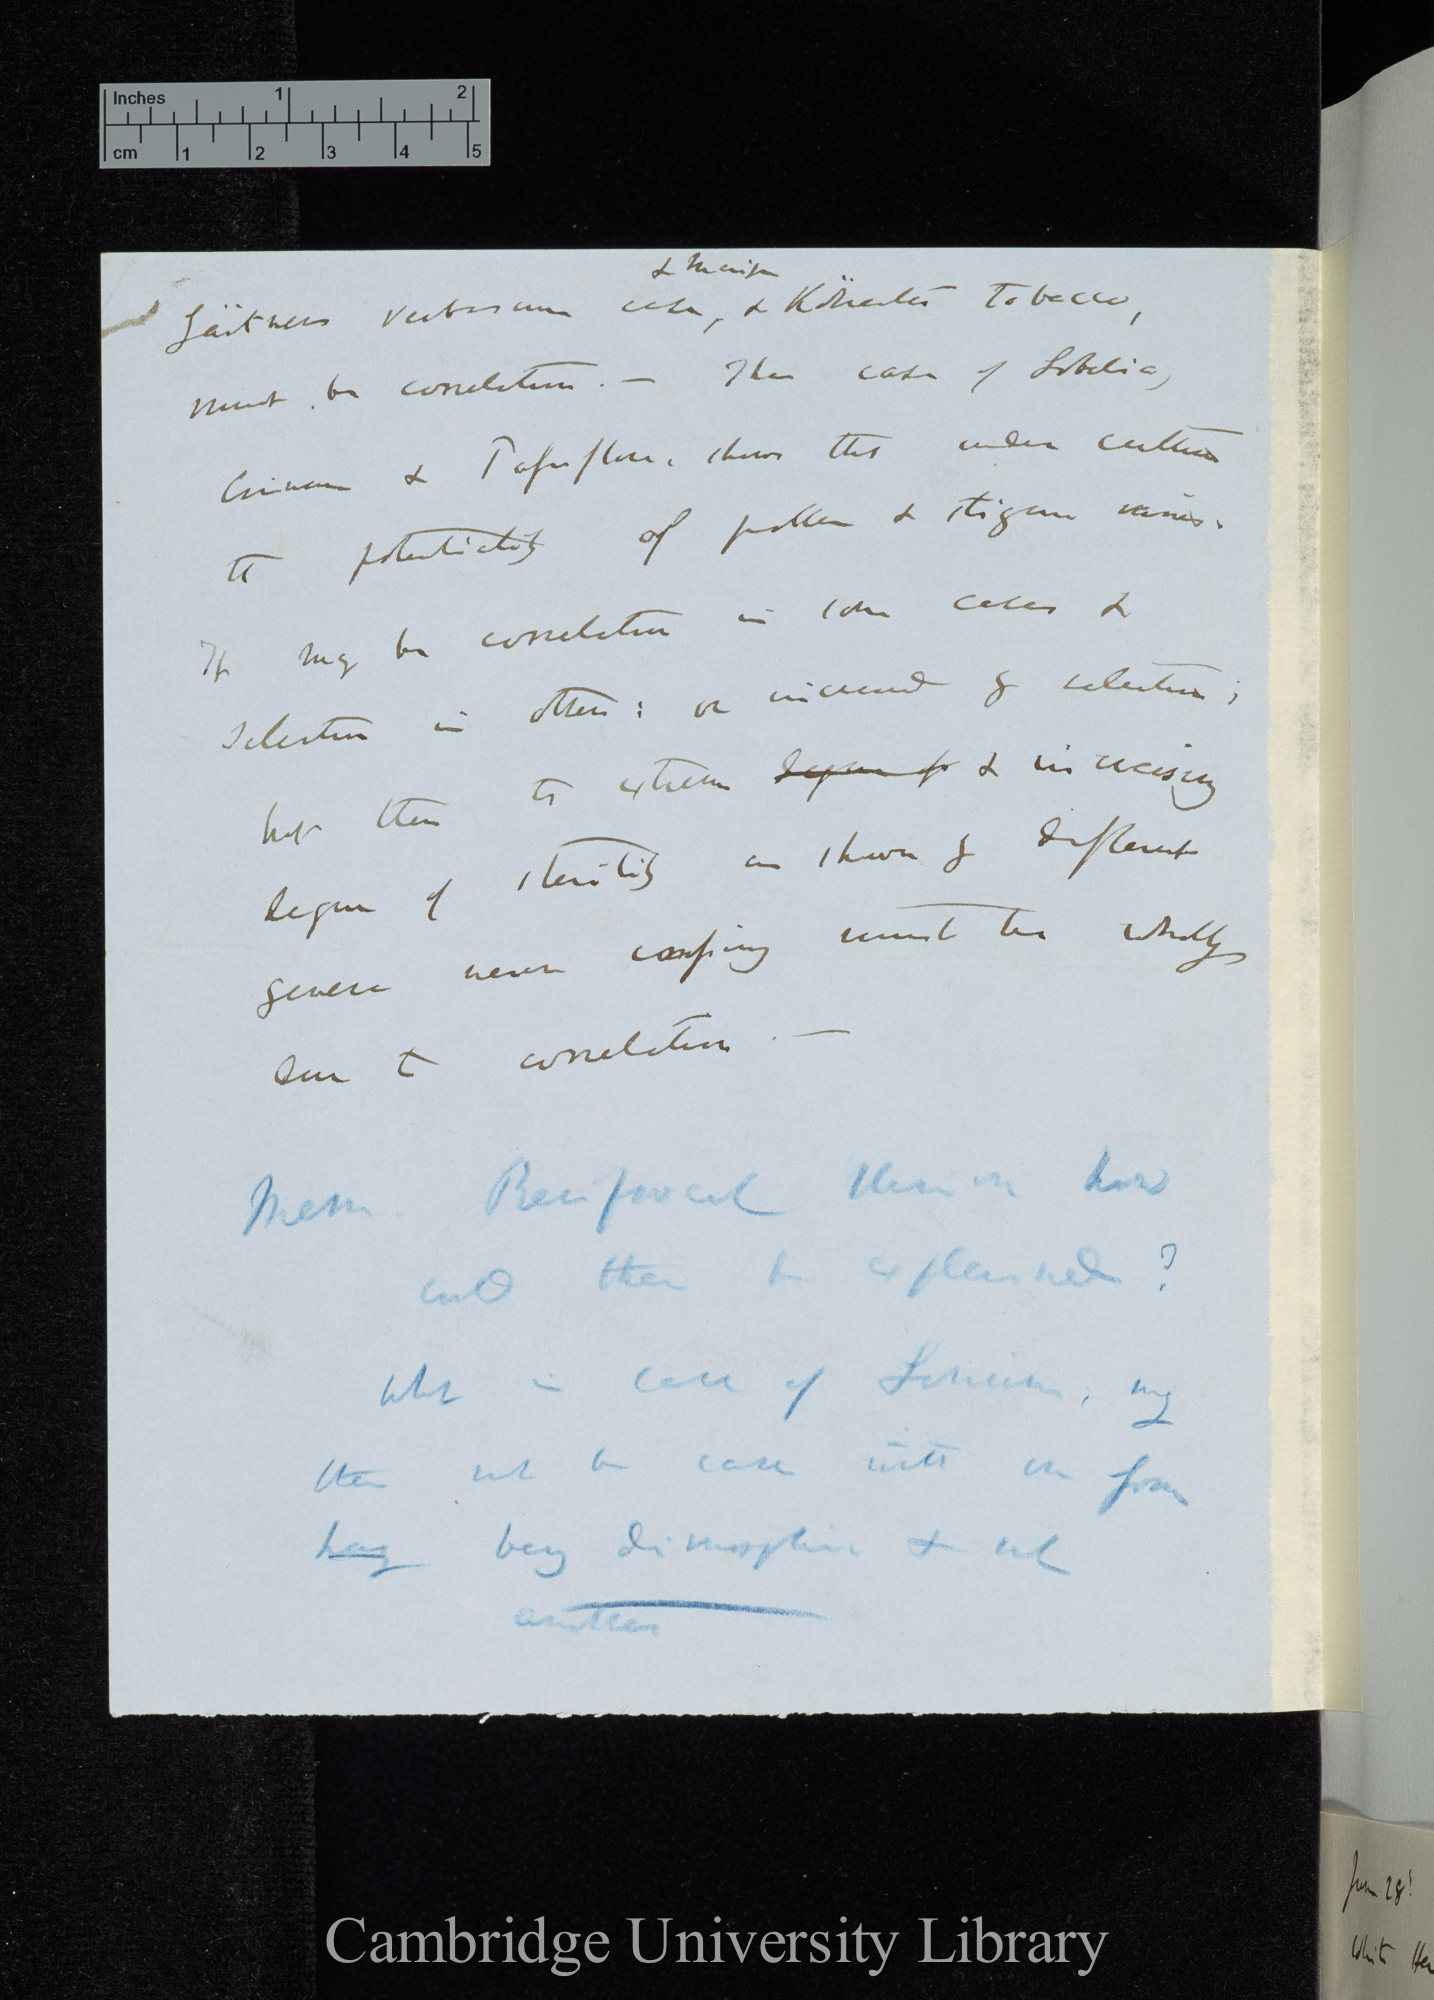 Inches 1 2
cm 1 2 3 4 5
& Maize
Gärtners Verbascum case, & Kölreuter's Tobacco,
must be correlation. — The case of Lobelia,
Crinum & Passiflora, shows that under culture
the potentiality of pollen & stigma varies.
It may be correlation in some cases &
selection in others: or increased by selection;
but then the extreme degree of & increasing
degree of sterility as shown by different
genera never crossing must be wholly
due to correlation. —
Mem. Reciprocal Union how
could then be explained?
What in case of my
then not be case with one form
being dimorphic & not
another
June 28
White
Cambridge University Library